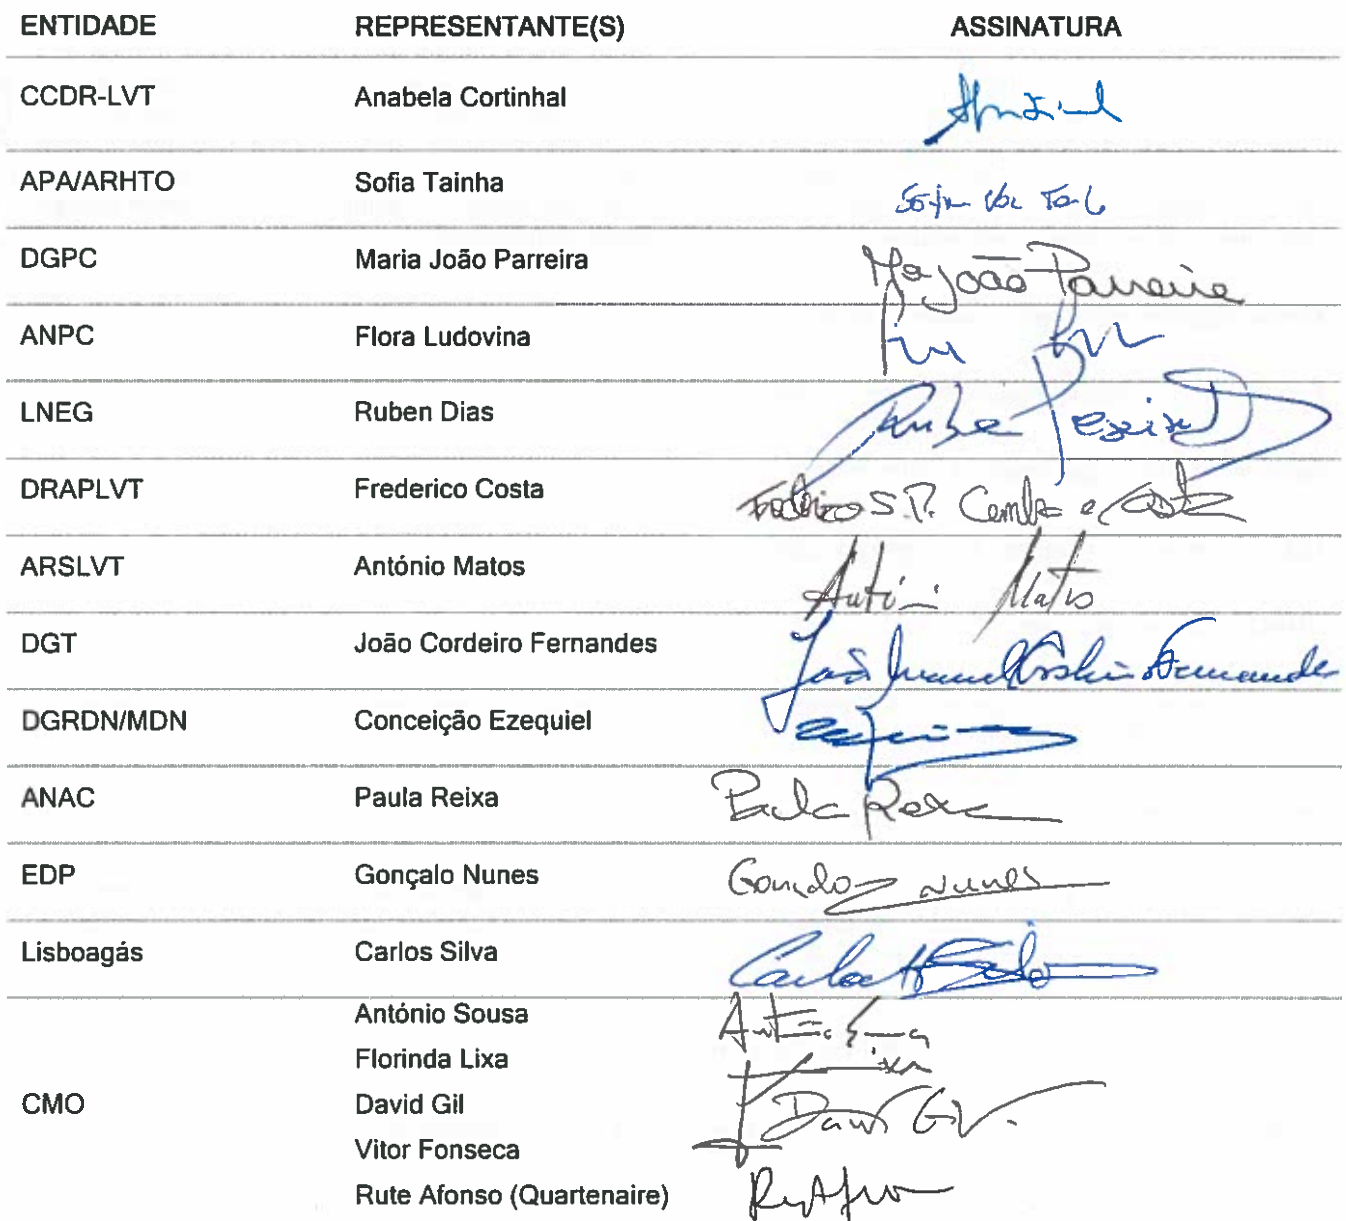 ENTIDADE REPRESENTANTE(S) ASSINATURA
CCDR-LVT Anabela Cortinhal
APA/ARHTO Sofia Tainha
DGPC Maria João Parreira Mª João Parreira
ANPC Flora Ludovina
LNEG Ruben Dias Ruben
DRAPLVT Frederico Costa Frederico S.P. e Costa
ARSLVT António Matos António Matos
DGT João Cordeiro Fernandes João Manuel Cordeiro Fernandes
DGRDN/MDN Conceição Ezequiel
ANAC Paula Reixa Paula Reixa
EDP Gonçalo Nunes Gonçalo Nunes
Lisboagás Carlos Silva Carlos Silva
António Sousa António Sousa
Florinda Lixa Lixa
CMO David Gil David Gil.
Vitor Fonseca
Rute Afonso (Quartenaire)